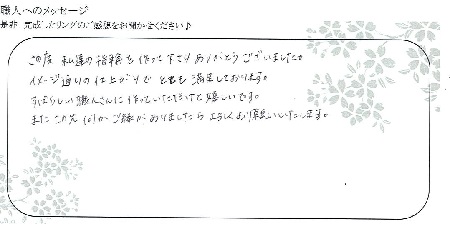 職人へのメッセージ
是非 完成したリングのご感想をお聞かせください♪
この度 私達の指輪を作って下さりありがとうございました。
イメージ通りの仕上がりで とても満足しております。
すばらしい職人さんに作っていただけて嬉しいです。
また この先 何かご縁がありましたら よろしくお願いいたします。